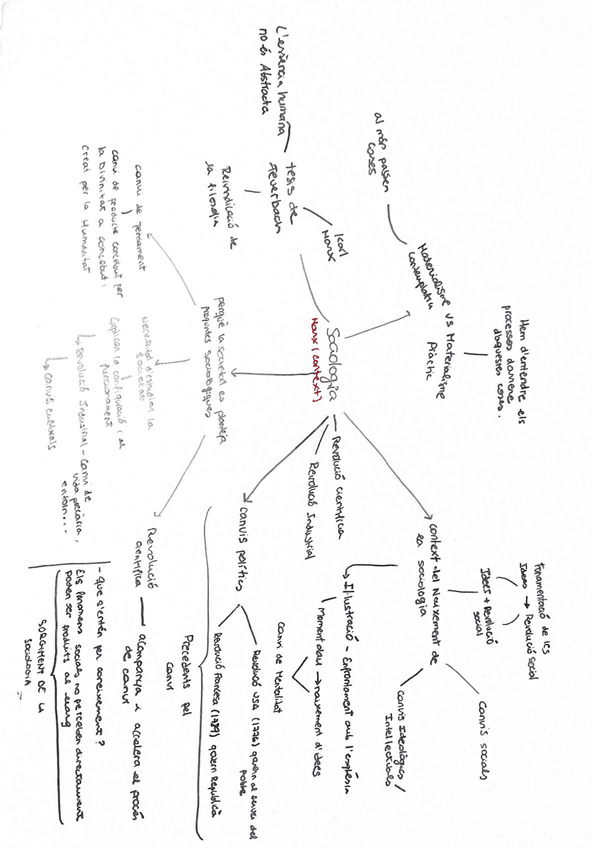 Sociologia
Marx (context)
Karl
Marx
tesis de
Feuerbach
L'essència humana
no és Abstracta
Reivindicació de
la filosofia
Materialisme vs Materialisme
contemplatiu
Pràctic
al món passen
coses
Hem d'entendre els
processos darrere
d'aquestes coses.
context del Naixement de
la sociologia
Idees + Revolució
social
Fonamentació de les
Idees → Revolució social
Canvis socials
canvis Ideològics /
Intel·lectuals
Revolució científica
Revolució Industrial
Il·lustració - Enfrontament amb l'església
Moment clau → naixement d'idees
Canvi de Mentalitat
canvis polítics
Revolució USA (1776) govern al servei del
Poble
Revolució Francesa (1789) govern República
Precedents pel
canvi
perquè la societat es planteja
preguntes sociològiques
canvi de pensament
canvi de producte concebut per
la Divinitat a concebut i
creat per la Humanitat
Necessitat d'estudiar la
societat
Explicar la configuració i el
funcionament
↳ Revolució Industrial - Canvi de
vida pecuària,
entorn...
↳ canvis culturals
Revolució
científica
acompanya i accelera el procés
de canvi
- que s'entén per coneixement?
Els fenomens socials no perceben directament
poden ser produïts al llarg
SORGIMENT DE LA
Sociologia